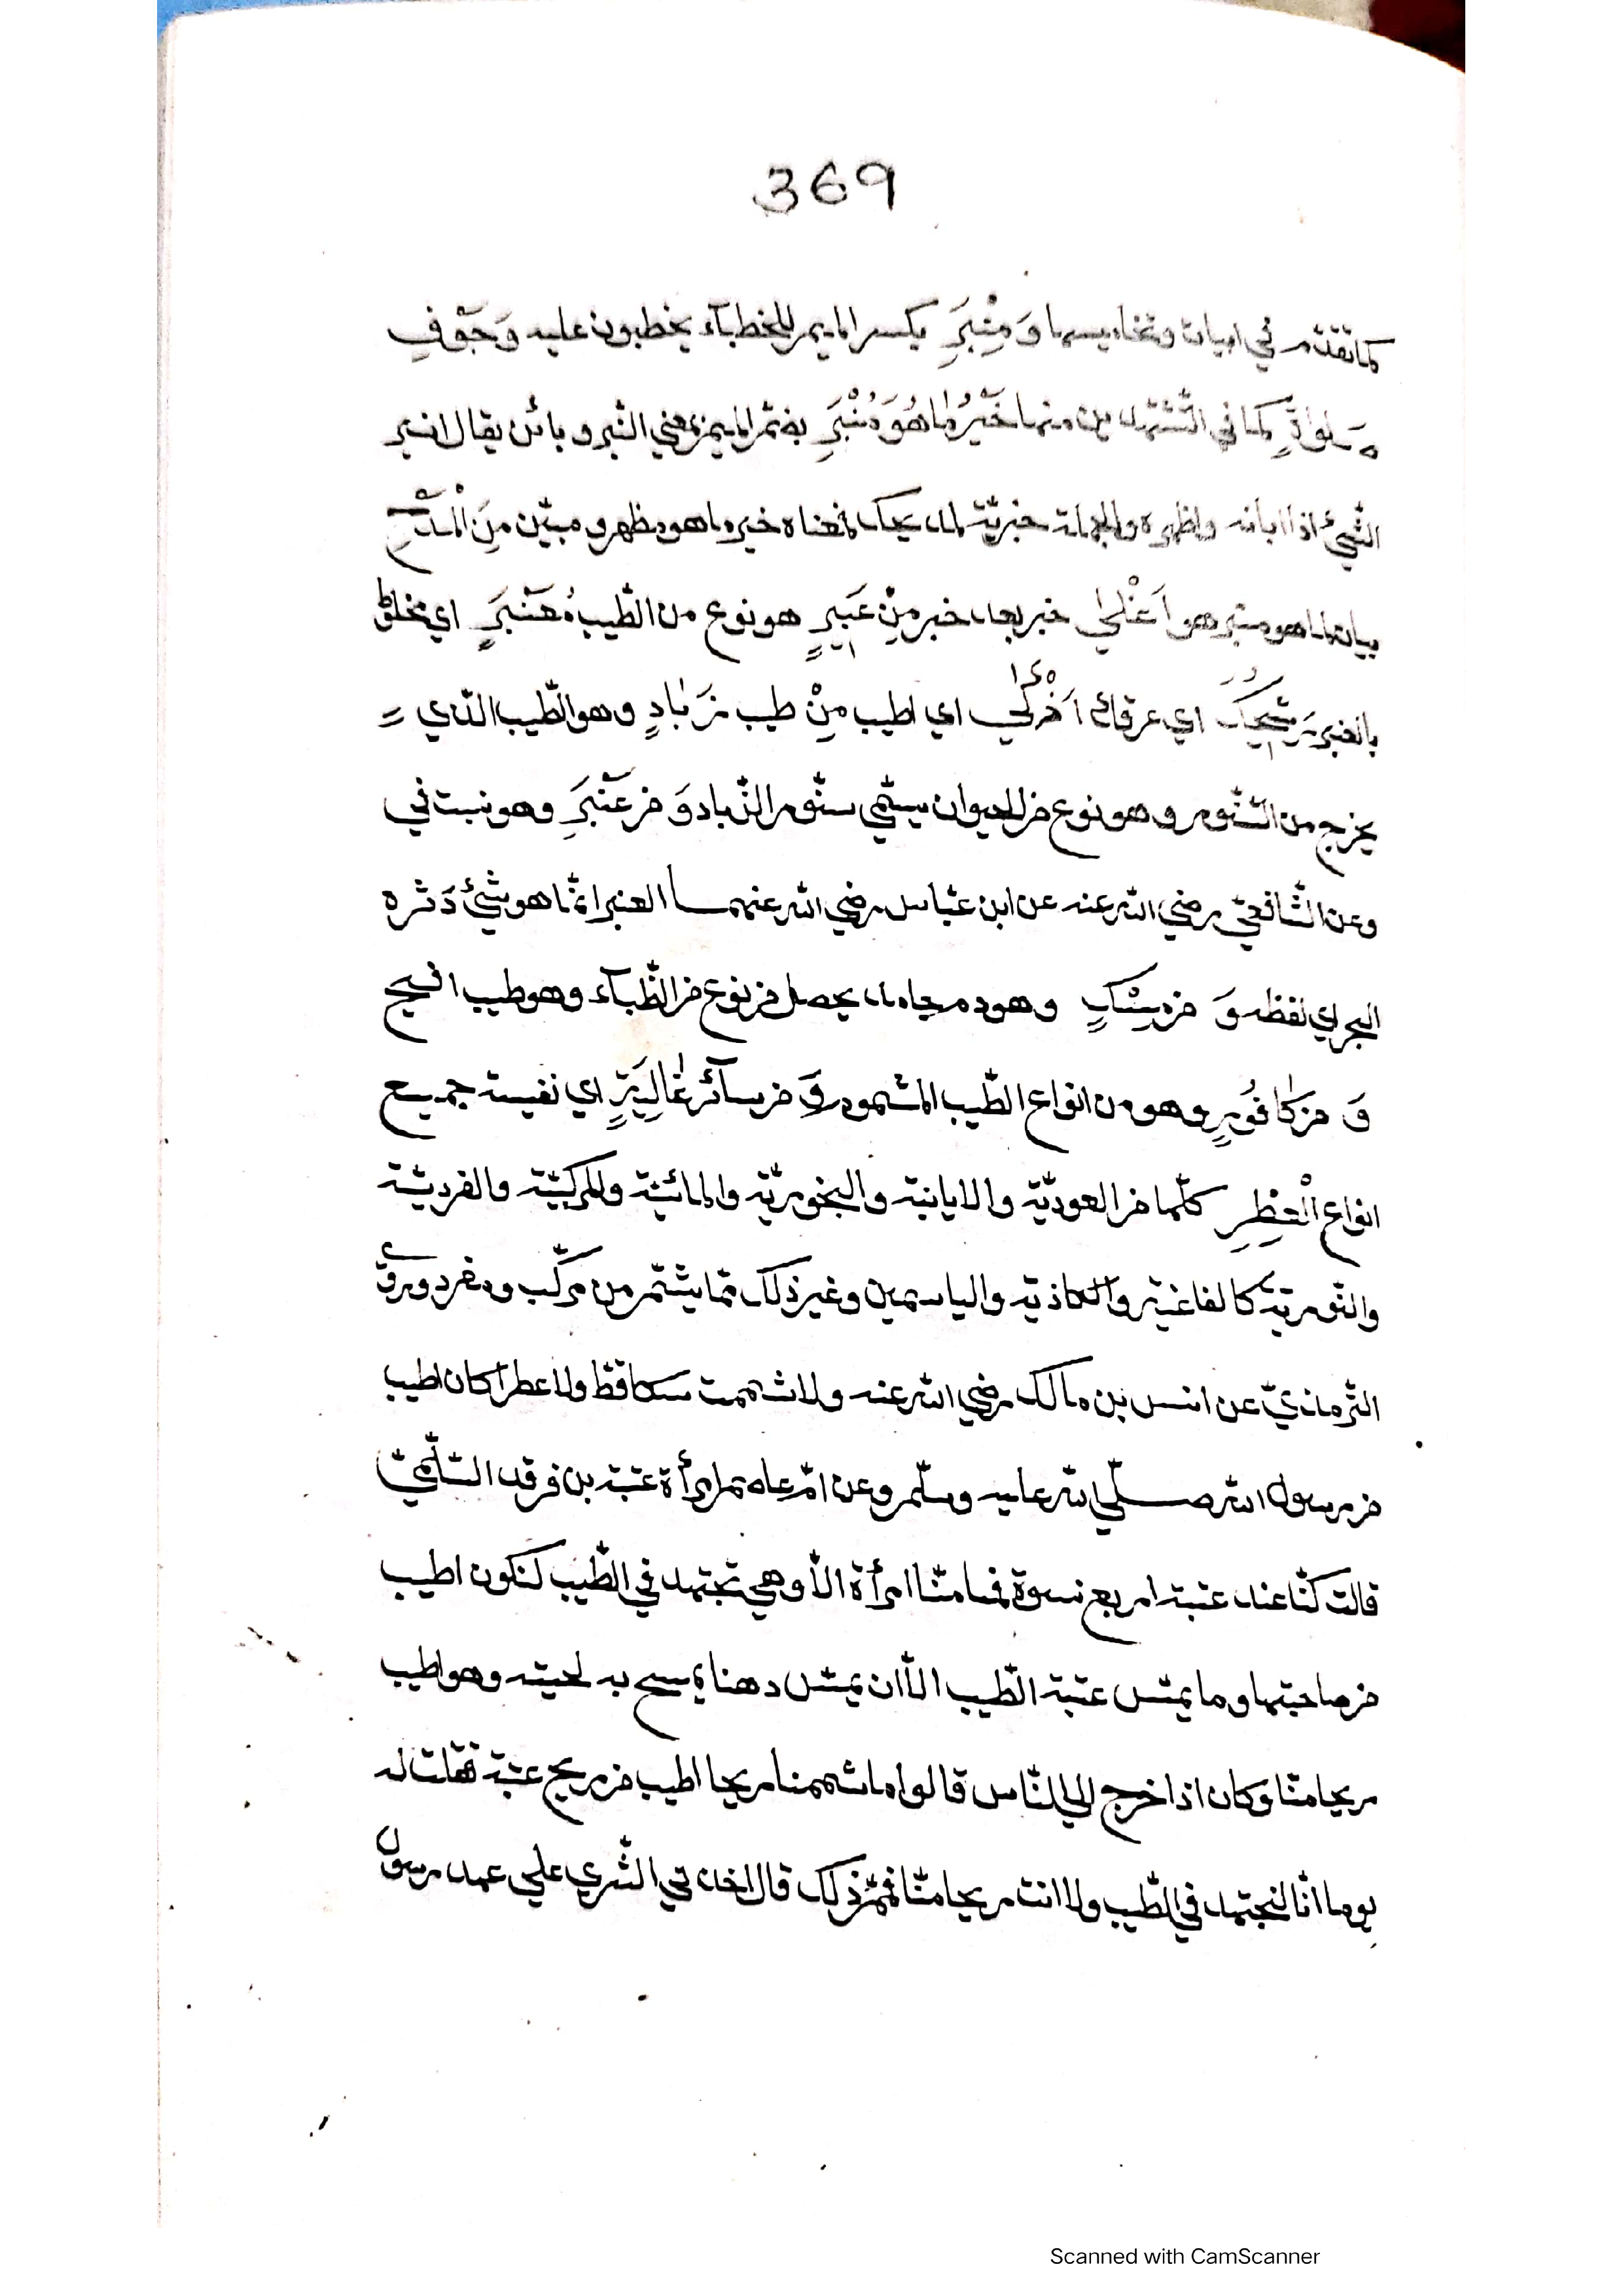 369
كما تقدّم في ابيات وتخاميسها وَمِنْبَرِ بكسر الميم للخطبآء يخطبون عليه وَجَوْفِ
صَلٰوةٍ كما في التّشهّد بين منها خَيْرُ مَا هُوَ مُنْبَرِ بضمّ الميم بمعني النّبر وبائن يقال انبر
الشّيئ اذا ابانه واظهره والجملة خبريّة لمديحك فمعناه خير ما هو مظهر ومبيّن مِنَ الْمَدْحِ
بيان لما هو منبر هو اَعْلٰي خبر بعد خبر مِنْ عَبِيرٍ هو نوع من الطّيب مُعَنْبَرٍ اي مخلوط
بالعنبر رَشْحُكَ اي عرقك اَذْكٰي اي اطيب مِنْ طيب زَبَادٍ وهو الطّيب الّذي
يخرج من السّنّور وهو نوع من الحيوان يسمّي سنّور الزّباد وَ من عَنْبَرِ وهو نبت في
وعن الشّافعيّ رضي اللّه عنه عن ابن عبّاس رضي اللّه عنهما العنبر انّما هو شيئ دَثره
البحر اي لفظه وَ من مِسْكٍ وهو دم جامد يحصل من نوع من الظّبآء وهو طيب افيح
وَ من كَافُوْرٍ وهو من انواع الطّيب المشموم وَ من سآئر غٰالِيَةٍ اي نفيسة جميع
انواع الْعِطْرِ كلّها من العوديّة والابانية والبخوريّة والمائيّة والمركبيّة والفرديّة
والنّوريّة كالفاغية والكاذية والياسمين وغير ذلك ممّا يشتمّ من مركّب ومفرد وروي
التّرمذيّ عن انس بن مالك رضي اللّه عنه ولا شممت مسكا قطّ ولا عطرا كان اطيب
من رسول اللّه صلّي اللّه عليه وسلّم وعن امّ عاصم امرأة عتبة بن فرقد السّلميّ
قالت كنّا عند عتبة اربع نسوة فما منّا امرأة الّا وهي تجتهد في الطّيب لتكون اطيب
من صاحبتها وما يمسّ عتبة الطّيب الّا ان يمسّ دهنا يمسح به لحيته وهو اطيب
ريحا منّا وكان اذا خرج الي النّاس قالوا ما شممنا ريحا اطيب من ريح عتبة فقلت له
يوما انّا لنجتهد في الطّيب ولا انت ريحا منّا فممّ ذلك قال اخذني الشّري علي عهد رسول
Scanned with CamScanner